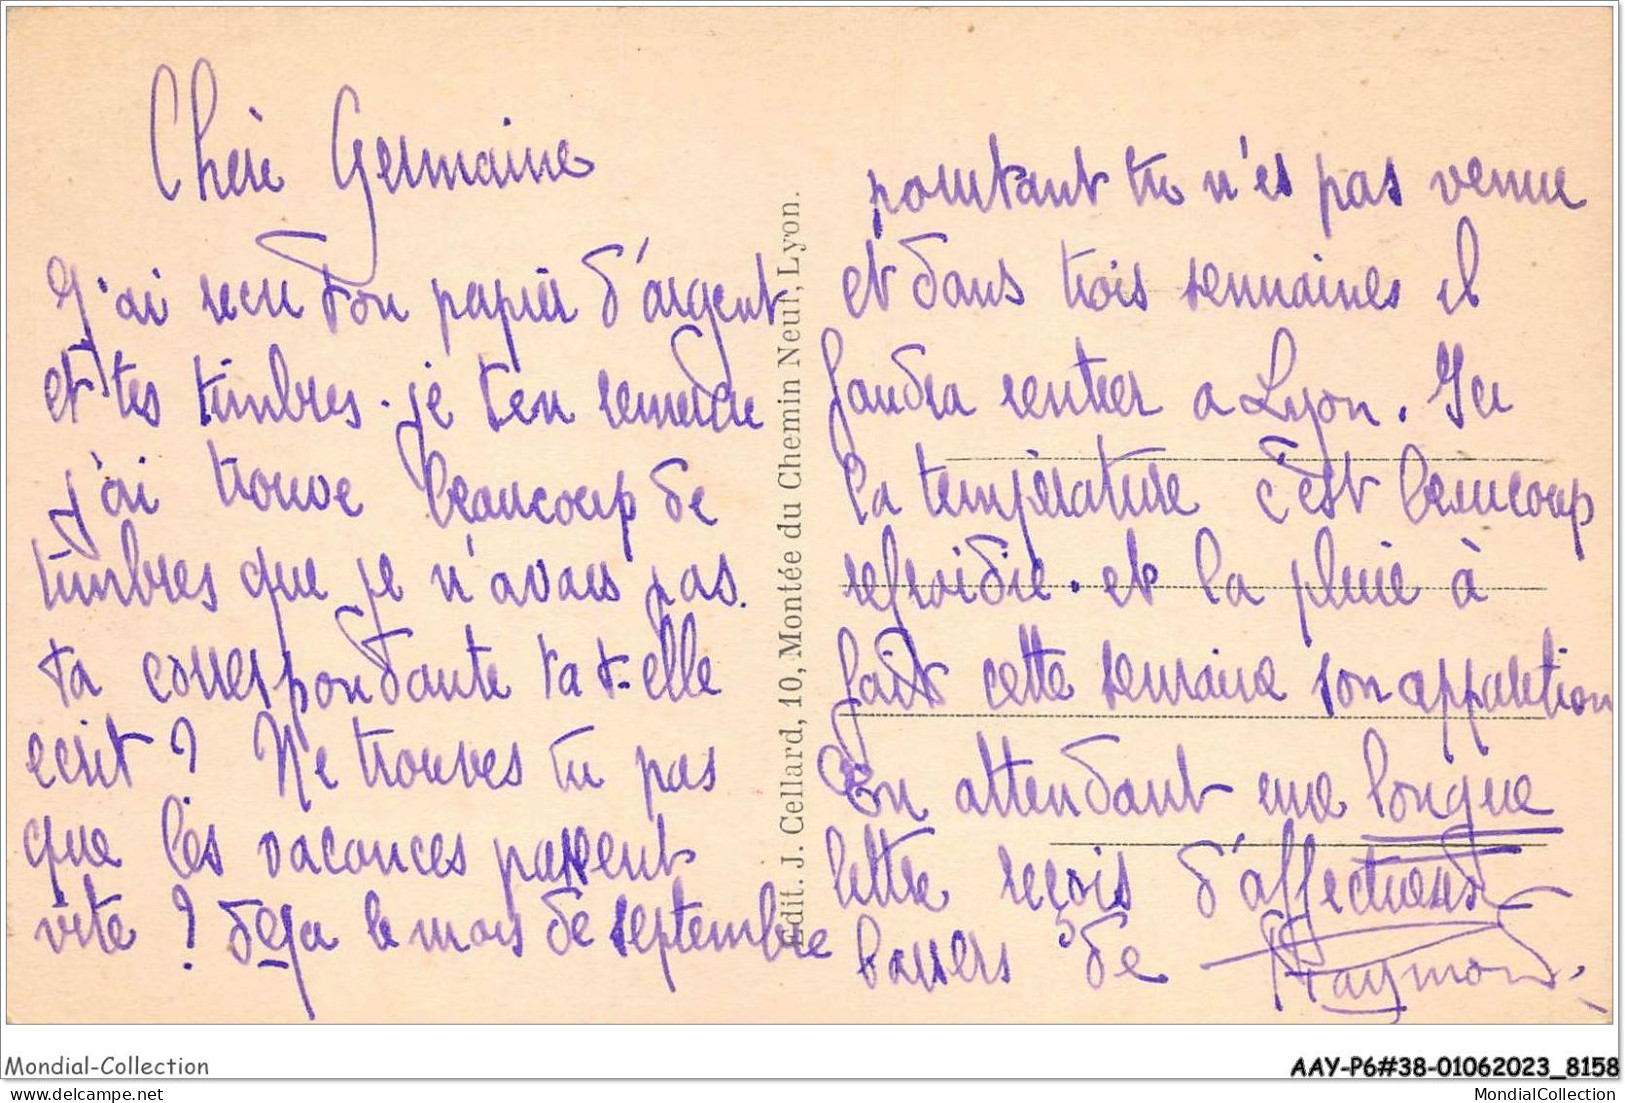 Chère Germaine
J'ai recu ton papier d'argent
et tes timbres. je t'en remercie
j'ai trouvé beaucoup de
timbres que je n'avais pas.
ta correspondante ta t-elle
ecrit ? Ne trouves tu pas
que les vacances passent
vite ? deja le mois de septembre
Edit. J. Cellard, 10, Montée du Chemin Neuf, Lyon.
pourtant tu n'es pas venue
et dans trois semaines il
faudra rentrer a Lyon. Ici
la température c'est beaucoup
refroidie. et la pluie à
fait cette semaine son apparition
En attendant une longue
lettre reçois d'affectueux
baisers de Raymond.
Mondial-Collection
AAY-P6#38-01062023_8158
MondialCollection